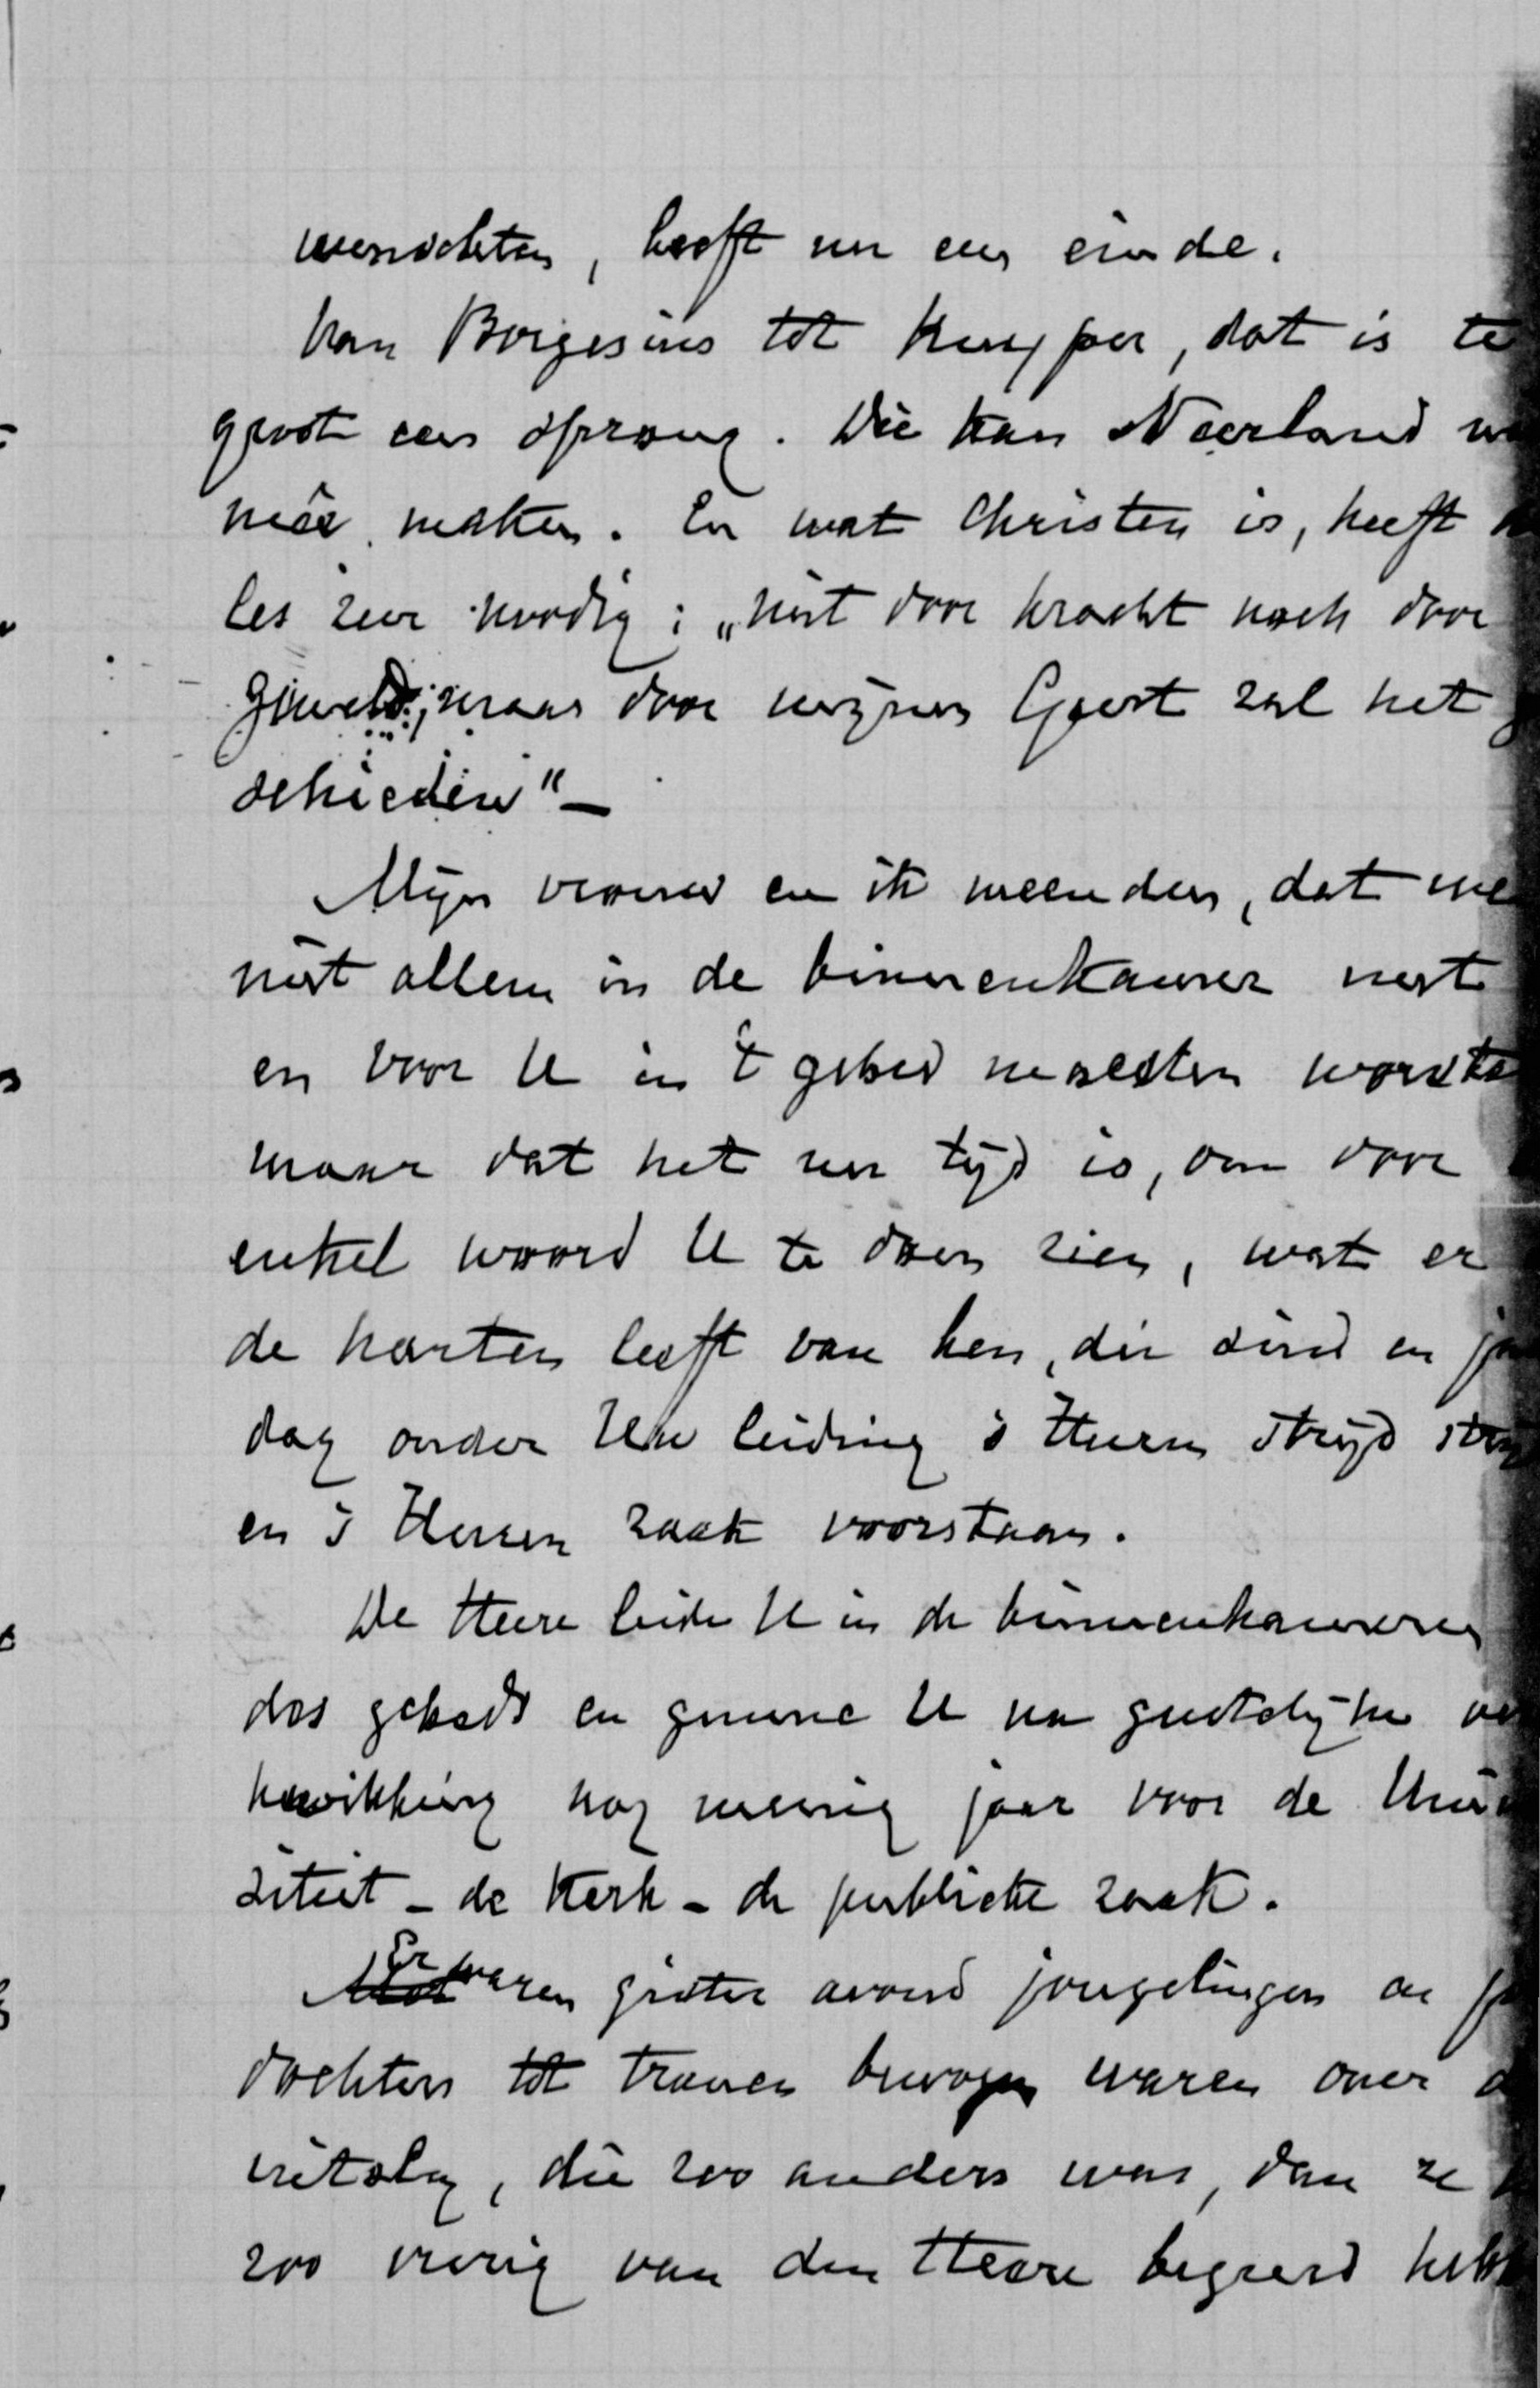 wenschten, heeft nu een einde.
Van Borgesius tot Kuyper, dat is te
groot een sprong. Die kan Neerland
meê maken. En wat Christen is, heeft
les zeer noodig: „niet door kracht noch door
geweld; maar door mijnen Geest zal het
schieden"—
Mijn vrouw en ik meenden, dat we
niet alleen in de binnenkamer
en voor U in 't gebed moesten
maar dat het nu tijd is, om door
enkel woord U te doen zien, wat er
de harten leeft van hen, die sind en
dag onder Uw leiding 's Heeren strijd
en 's Heeren zaak voorstaan.
De Heere leide U in de binnenkameren
des gebeds en gunne U na geestelijke
kwikking nog menig jaar voor de
siteit - de Kerk - de publieke zaak.
Er waren gister avond jongelingen en
dochters tot tranen bewogen waren over
uitslag, die zoo anders was, dan ze
zoo vurig van den Heere begeerd